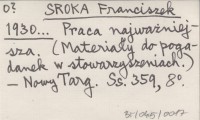 o? SROKA Franciszek
1930... Praca najważniej-
sza. (Materiały do poga-
danek w stowarzyszeniach.)
— Nowy Targ. Ss. 359, 8°.